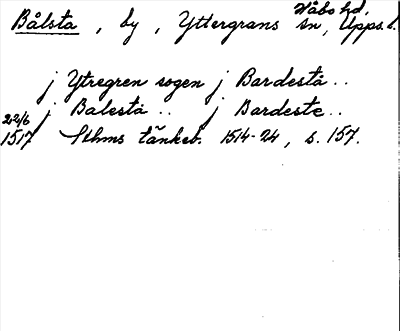 Bålsta, by, Yttergrans sn, Håbo hd, Upps. l.
j Ytregren sogen j Bardestä..
j Balestä.. j Bardeste..
22/6 1517 Sthms tänkeb. 1514-24, s. 157.